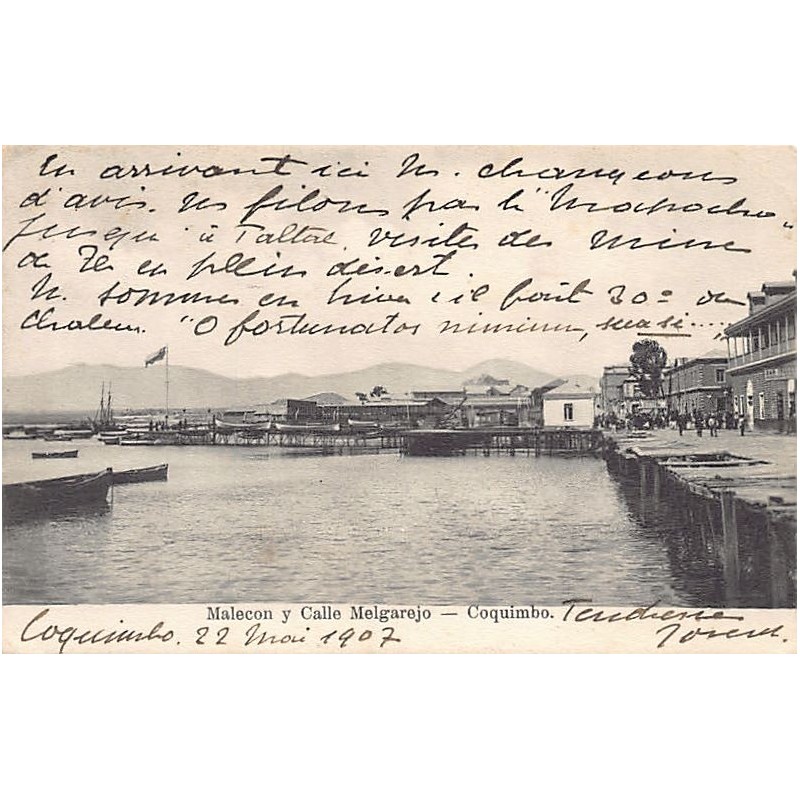 En arrivant ici Ns. changeons
d'avis. Ns filons par le "Mapocho"
jusqu'à Taltal, visiter des mines
de Fe en plein désert.
Ns. sommes en hiver, il fait 30° de
chaleur. "O fortunatos nimium, sua si....
Malecon y Calle Melgarejo — Coquimbo.
Tendresse
Coquimbo. 22 Mai 1907